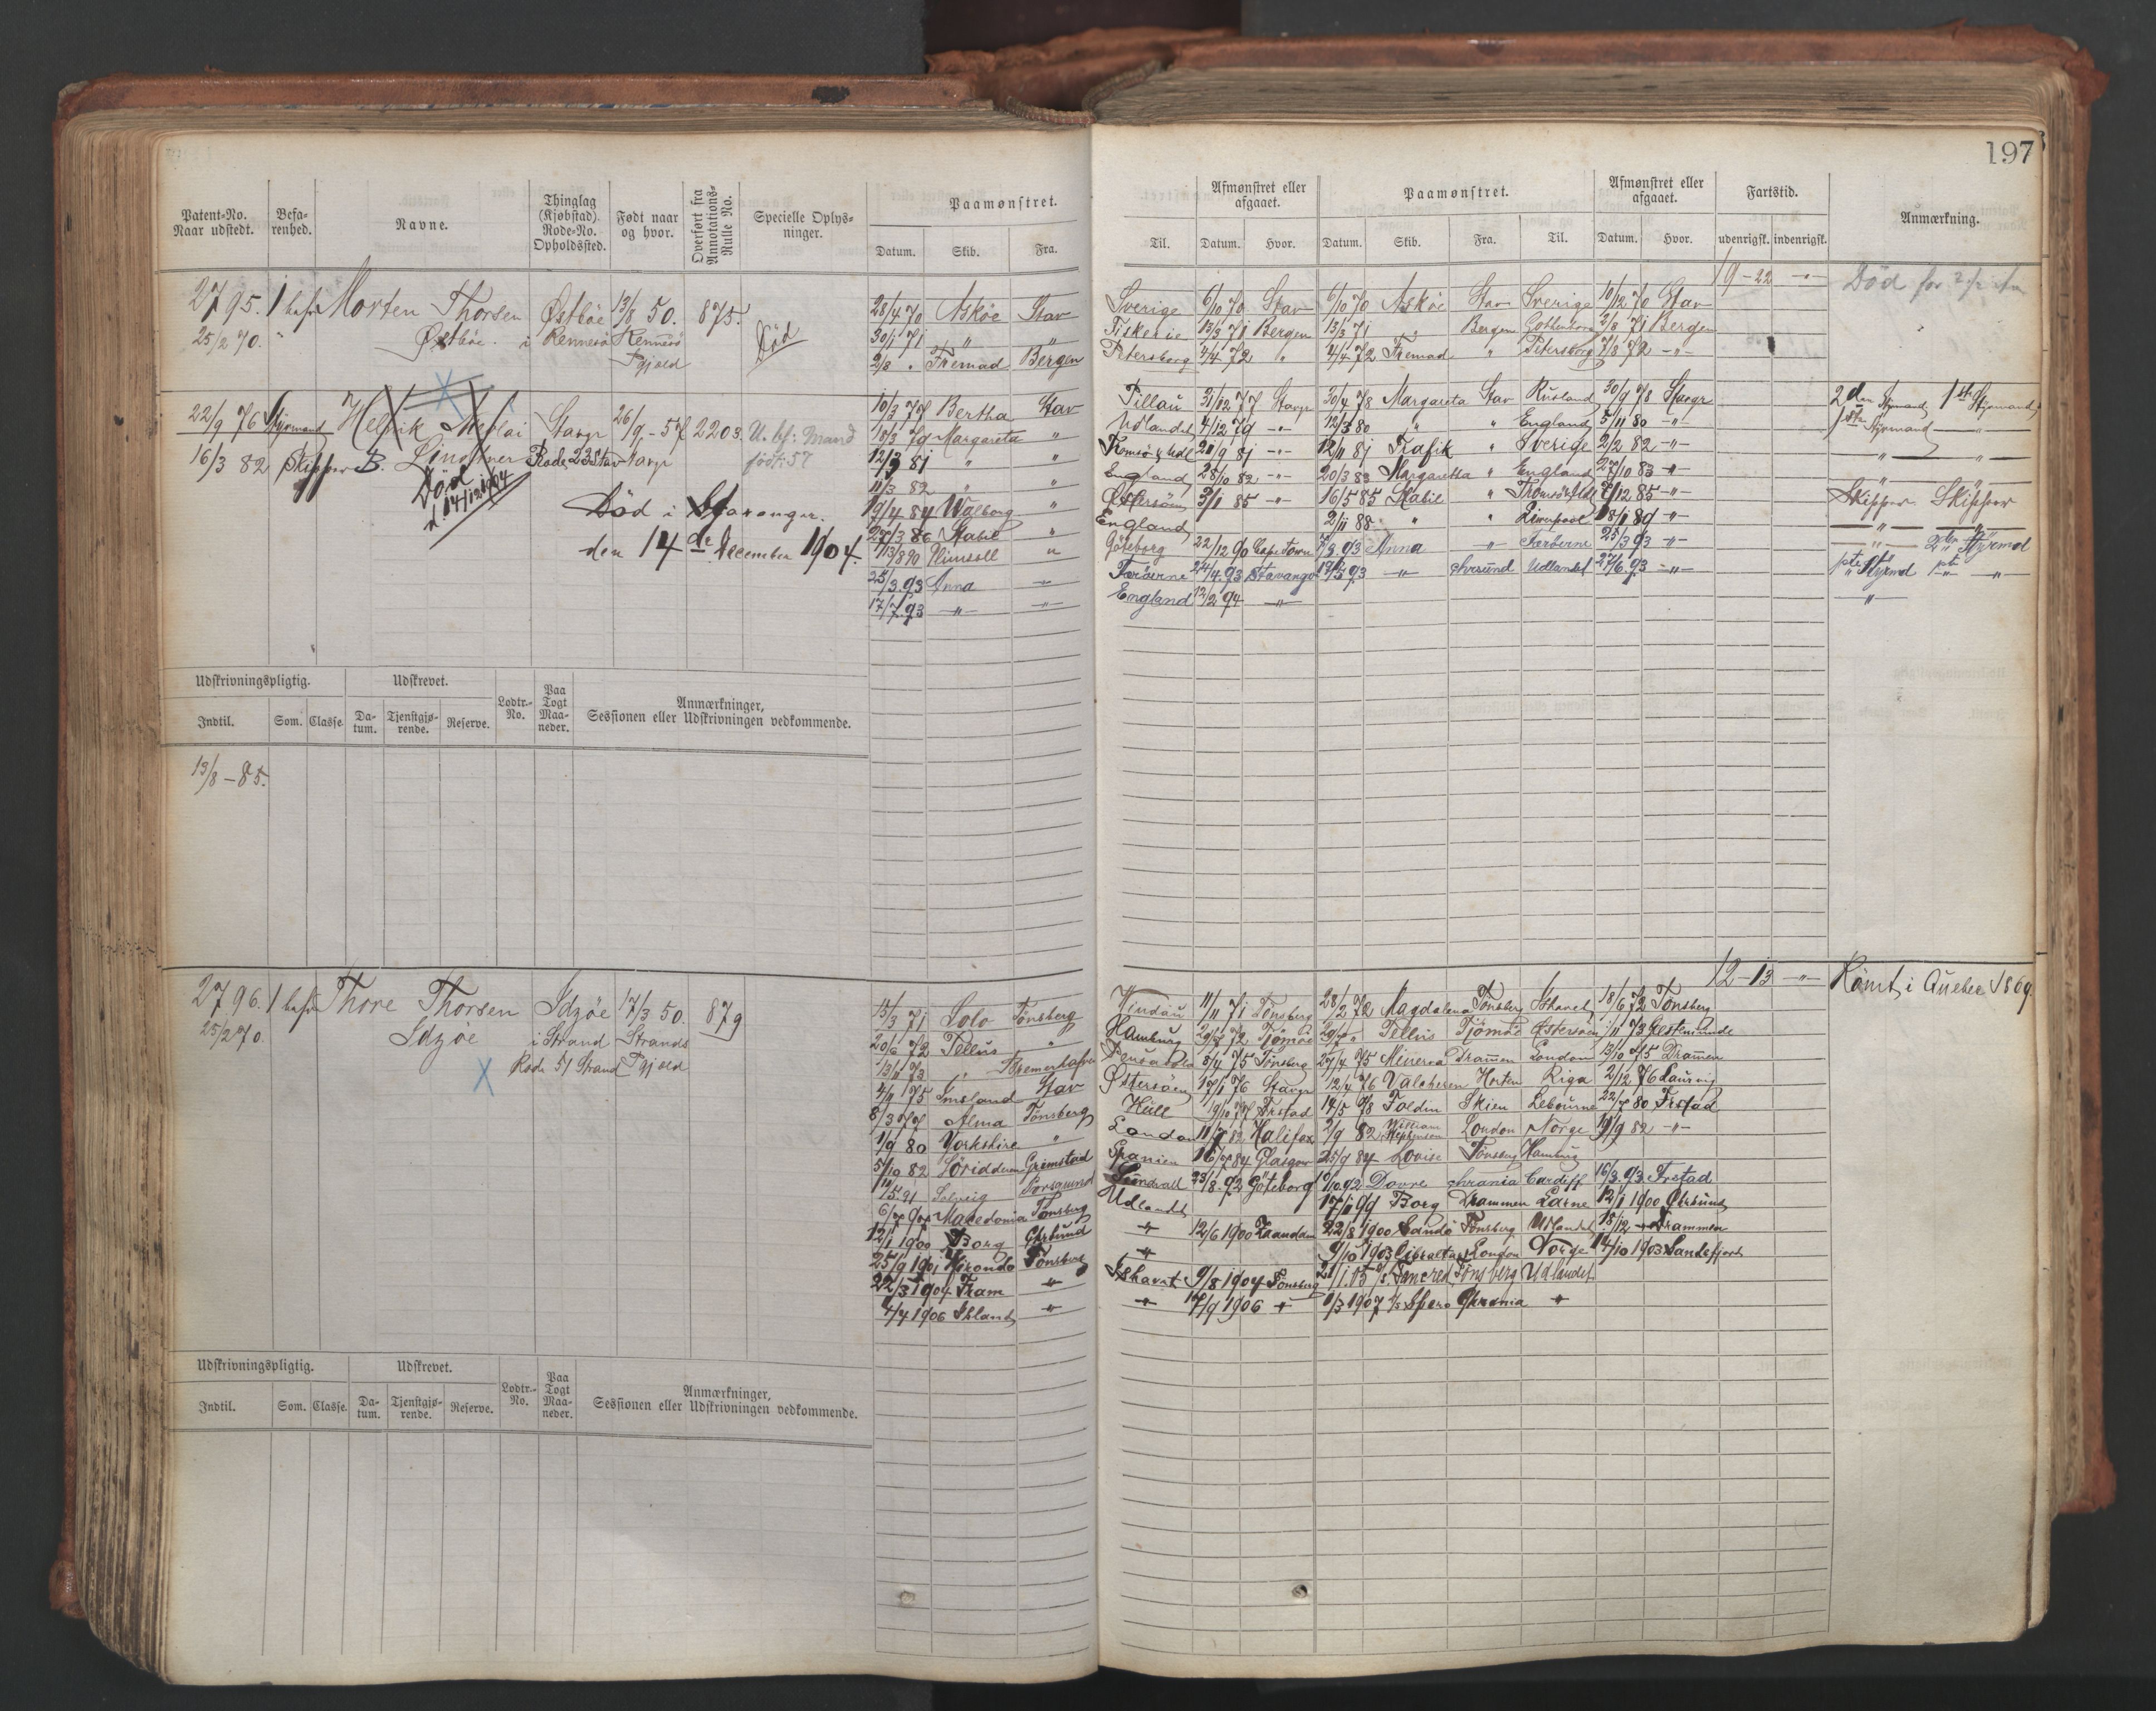 197
Patent-No. Naar udstedt.
Befa-renhed.
Navne.
Thinglag (Kjøbstad). Rode-No. Opholdssted.
Født naar og hvor.
Overført fra Annotations-Rulle No.
Specielle Oplys-ninger.
Paamønstret.
Datum. Skib. Fra.
Til.
Afmønstret eller afgaaet.
Datum. Hvor.
Paamønstret.
Datum. Skib. Fra. Til.
Afmønstret eller afgaaet.
Datum. Hvor.
Fartstid.
udenrigsk. indenrigsk.
Anmærkning.
2795. 1 Morten Thorsen Østbøe 13/8 50. 875.
25/2 70. " Østbøe i Rennesø Rennesø Pgjeld
Død
28/4 70 Askøe Stav Sverige 6/10 70 Stav 6/10 70 Askøe Stav Sverige 10/12 70 Stav
30/1 71 " " Fiskerie 13/3 71 Bergen 13/3 71 " Bergen Gottenborg 2/8 71 Bergen
2/8 " Fremad Bergen Petersborg 4/4 72 " 4/4 72 Fremad " Petersborg 7/8 72 -"-
19-22 -"- Død for
22/9 76 Styrmand Helnik Nicolai Stavgr 26/9 - 57 2203. U. bef: Mand
16/3 82 Skipper B. Lindtner Rode 23 Stav Stavgr født: 57
Død d. 14/12 1904
Død i Stavanger.
den 14de December 1904.
10/3 77 Bertha Stav Pillau 31/12 77 Stavgr 30/4 78 Margareta Stav Rusland 30/9 78 Stavgr 2den Styrmand 1ste Styrmand
18/3 79 Margareta " Udlandet 4/12 79 -"- 12/3 80 " " England 5/11 80 -"- 1ste Styrmand
12/3 81 " " Tromsø & Udl 20/9 81 -"- 12/11 81 Trafik " Sverige 2/2 82 -"-
11/3 82 " " England 28/10 82 -"- 20/3 83 Margaretha " England 27/10 83 -"-
19/4 84 Walborg " Østersøen 3/1 85 -"- 16/5 85 Stabil " 7/12 85 -"- Skipper Skipper
27/3 86 Stabil " England 2/11 88 " " Liverpool 18/1 89 -"-
11/3 890 Plimsoll " Göteborg 22/12 90 Cape Town 93 Anna -"- Færøerne 25/3 93 -"- 2den Styrmd
25/3.93 Anna -"- Færøerne 24/4.93 Stavanger 93 -"- Udlandet 27/6.93 -"- 1ste Styrmd 1ste -"-
17/7.93 -"- -"- England 12/2 94 -"-
Udskrivningspligtig. Udskrevet. Lodtr.-No. Paa Togt Maa-neder. Anmærkninger, Sessionen eller Udskrivningen vedkommende.
Indtil. Som. Classe. Da-tum. Tjenstgjø-rende. Reserve.
13/8-85.
2796. 1 Thore Thorsen Idzøe 17/3 50. 879
25/2 70. Idzøe i Strand Strands
Rode 51 Strand Pgjeld
12-13 -"- Rømt i Quebec 1869.
15/3 71 Solo Tønsberg Windau 11/11 71 Tønsberg 28/2 72 Magdalena Tønsberg Ishavet 18/6 72 Tønsberg
20/6 72 Tellus " Hamburg 29/7 72 Tjømøe 29/7 " Tellus Tjømøe Østersøen 73 Gestemünde
13/11 73 " Bremerhafen Pensacola 8/4 75 Tønsberg 27/4 75 Minerva Drammen London 13/10 75 Drammen
4/11 75 Smsland Stav Østersøen 17/1 76 Stavgr 12/4 76 Valcheren Horten Riga 2/12 76 Laurvig
8/3 77 Alma Tønsberg Hull 19/10 77 Frstad 14/5 78 Foldin Skien 22/7 80 Frstad
1/9 80 Yorkshire " London 11/7 82 Halifax 2/9 82 William Stephenson London Norge 19/9 82 -"-
5/10 82 Grimstad Spanien 16/7 84 Glasgow 25/9 84 Lovise Tønsberg Hamburg
5.91 Solveig Porsgrund Sundsvall 23/8.92 Göteborg 10.92 Dovre Chrania Cardiff 16/3.93. Frstad
6/7 97 Macedonia Tønsberg Udlandet 17/11 99 Borg Drammen Larne 12/1 1900 Chrsund
12/1 1900 Borg Chrsund -"- 12/6 1900 Zaandam 22/8 1900 Sandø Tønsberg Udlandet 18/12 -"- Drammen
25/9 1901 Tønsberg -"- 9/10 1903 Gibraltar London Norge 14/10 1903 Sandefjord
22/3 1904 Fram -"- Ishavet 9/8 1904 Tønsberg 2/1.05 Tancred Tønsberg Udlandet
4/4 1906 Island -"- -"- 17/9 1906 -"- 1/3 1907 Spero Chrania -"-
Udskrivningspligtig. Udskrevet. Lodtr.-No. Paa Togt Maa-neder. Anmærkninger, Sessionen eller Udskrivningen vedkommende.
Indtil. Som. Classe. Da-tum. Tjenstgjø-rende. Reserve.